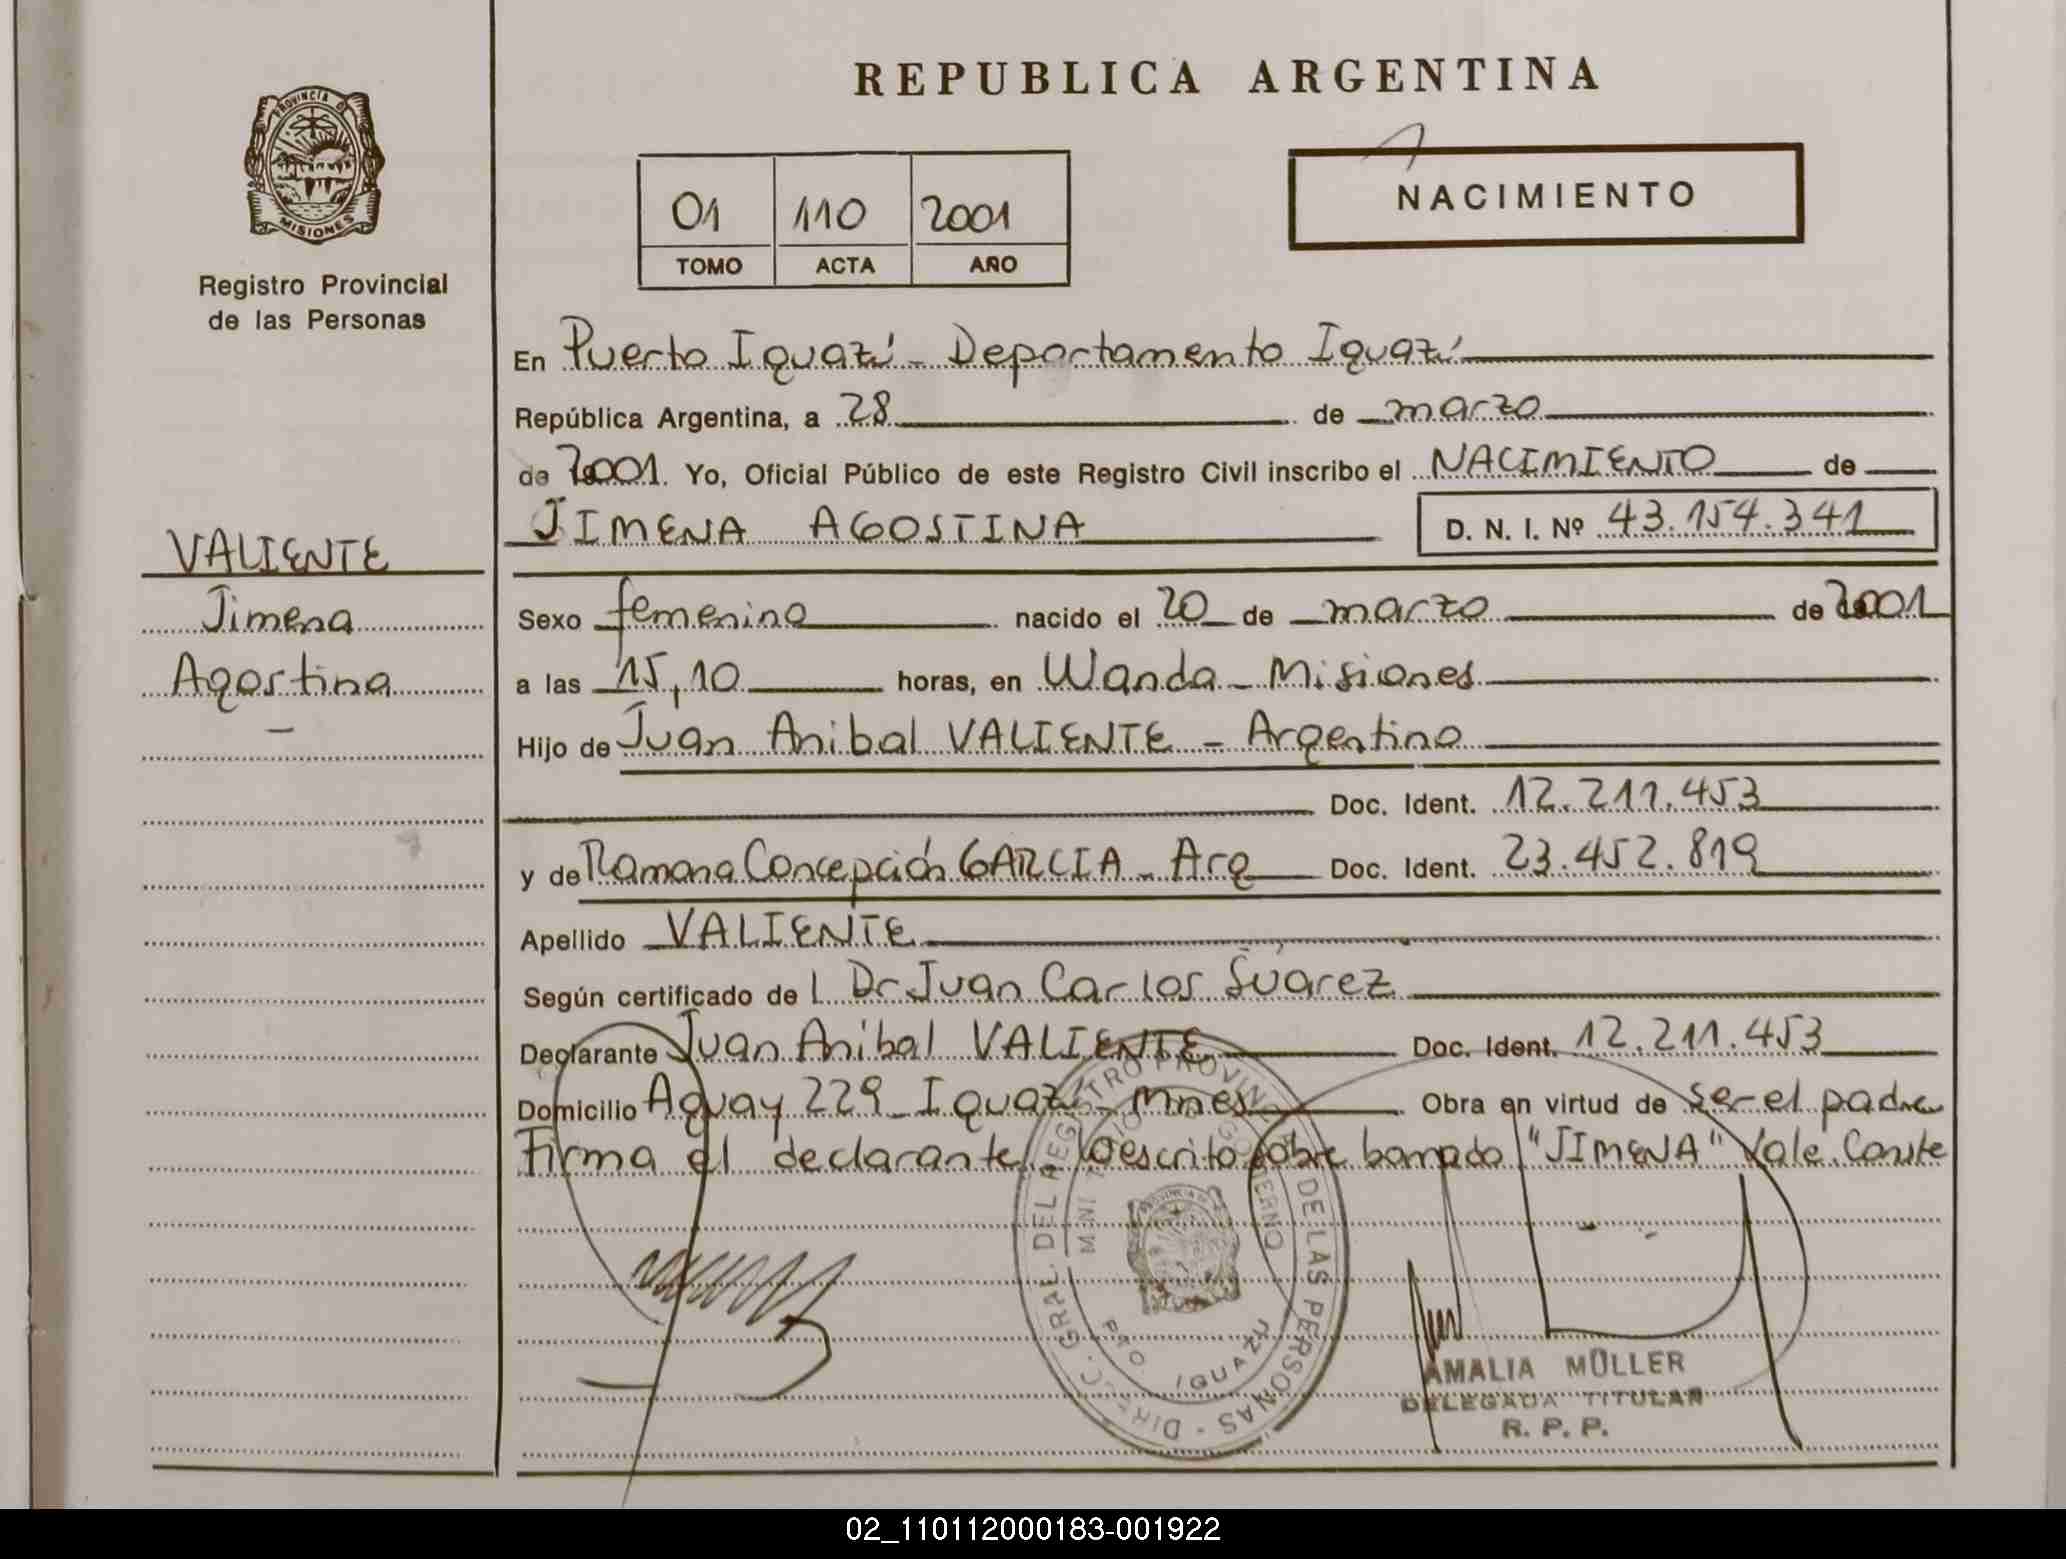 REPUBLICA ARGENTINA
PROVINCIA D
MISIONES
Registro Provincial
de las Personas
01 110 2001
TOMO ACTA AÑO
NACIMIENTO
En Puerto Iguazú - Departamento Iguazú
República Argentina, a 28 de marzo
de 2001. Yo, Oficial Público de este Registro Civil inscribo el NACIMIENTO de
JIMENA AGOSTINA D. N. I. Nº 43.154.341
VALIENTE
Jimena
Agostina
Sexo femenino nacido el 20 de marzo de 2001
a las 15,10 horas, en Wanda - Misiones
Hijo de Juan Anibal VALIENTE - Argentino
Doc. Ident. 12.211.453
y de Ramona Concepción GARCIA - Arg Doc. Ident. 23.452.819
Apellido VALIENTE
Según certificado de l Dr Juan Carlos Suarez
Declarante Juan Anibal VALIENTE Doc. Ident. 12.211.453
Domicilio Aguay 229 - Iguazú - Mnes Obra en virtud de ser el padre
Firma el declarante. Lo escrito sobre borrado "JIMENA" Vale. Conste
DIREC. GRAL DEL REGISTRO PROVINCIAL DE LAS PERSONAS -
GOBIERNO
PTO. IGUAZU
AMALIA MÜLLER
DELEGADA TITULAR
R. P. P.
02_110112000183-001922